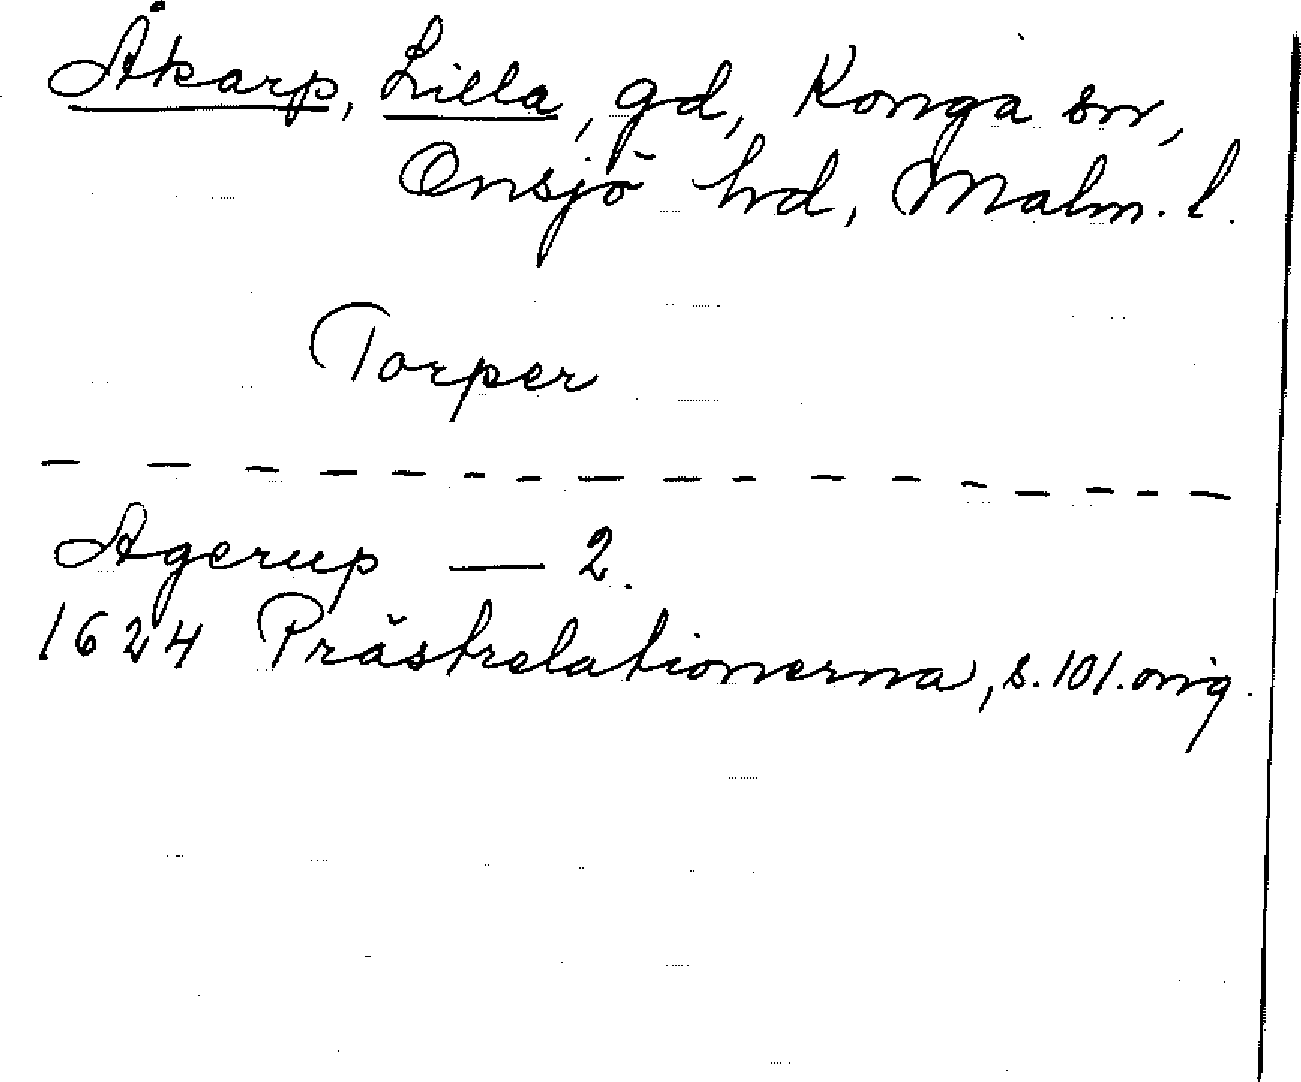 Åkarp, Lilla, gd, Konga sn,
Onsjö hd, Malm. l.
Torper
- - - - - - - - - - - - - - - - -
Agerup — 2.
1624 Prästrelationerna, s. 101. orig.